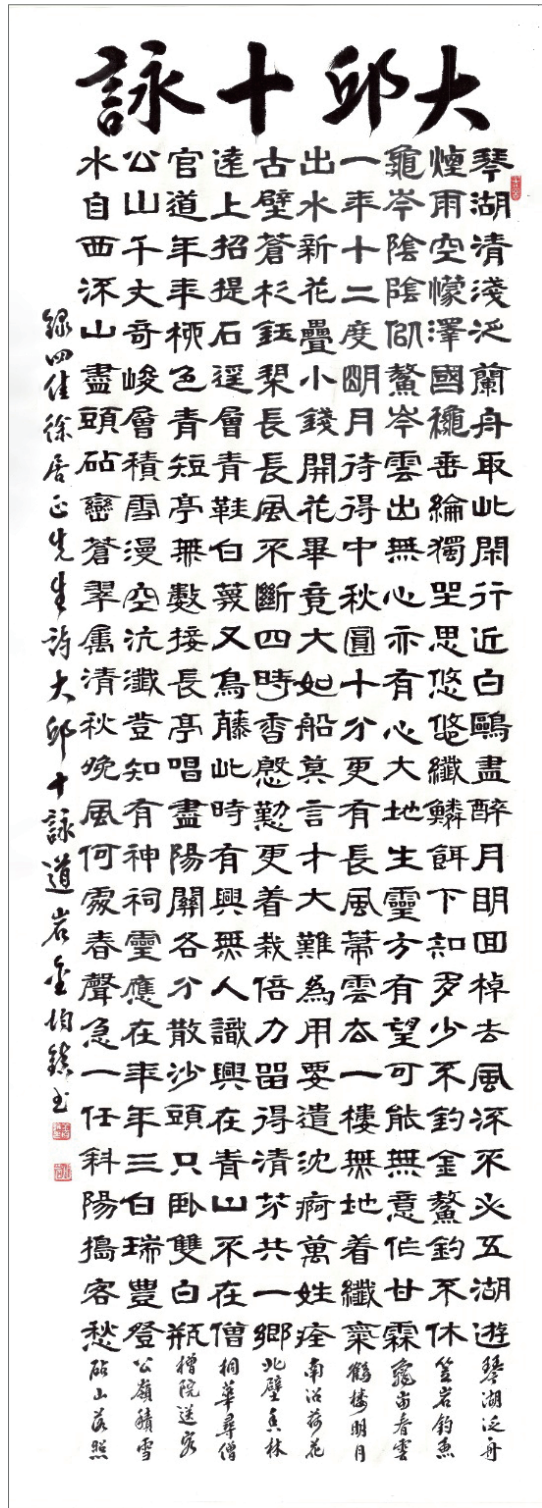 大邱十詠
琴湖清淺泛蘭舟取此閑行近白鷗盡醉月明回棹去風流不必五湖遊 琴湖泛舟
煙雨空濛澤國秋垂綸獨坐思悠悠纖鱗餌下知多少不釣金鰲釣不休 笠岩釣魚
龜岑陰陰似鰲岑雲出無心亦有心大地生靈方有望可能無意作甘霖 龜岫春雲
一年十二度明月待得中秋圓十分更有長風箒雲去一樓無地着纖氛 鶴樓明月
出水新花疊小錢開花畢竟大如船莫言才大難為用要遣沈痾萬姓痊 南沼荷花
古壁蒼杉鈺槊長長風不斷四時香慇懃更着栽培力留得清芬共一鄉 北壁香林
遠上招提石逕層青鞋白襪又烏藤此時有興無人識興在青山不在僧 桐華尋僧
官道年年柳色青短亭無數接長亭唱盡陽關各分散沙頭只臥雙白瓶 櫓院送客
公山千丈奇峻層積雪漫空沆瀣澄知有神祠靈應在年年三白瑞豐登 公嶺積雪
水自西流山盡頭砧巒蒼翠屬清秋晚風何處舂聲急一任斜陽搗客愁 砧山落照
錄四佳徐居正先生詩大邱十詠道岩金均鎮書